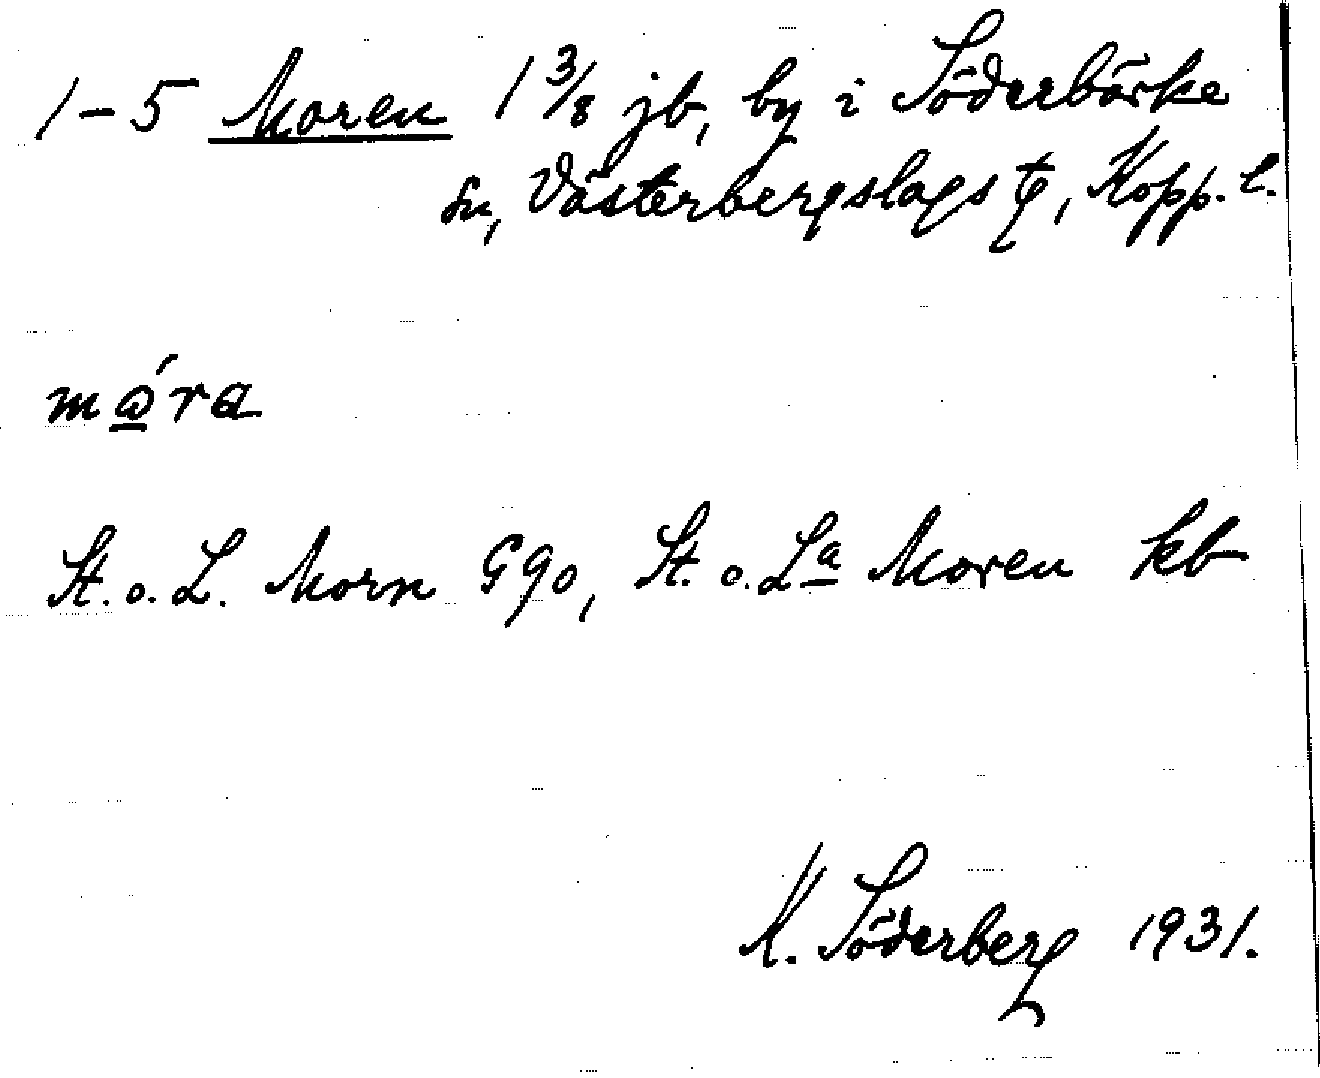 1–5 Moren 1 3/8 jb, by i Söderbärke
sn, Västerbergslags tg, Kopp. l.
mώ̲ra
St. o. L. Morn Ggo, St. o. La Moren kb
K. Söderberg 1931.